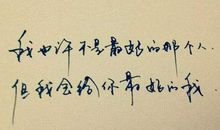 我也许不是最好的那个人.
但我会给你最好的我.